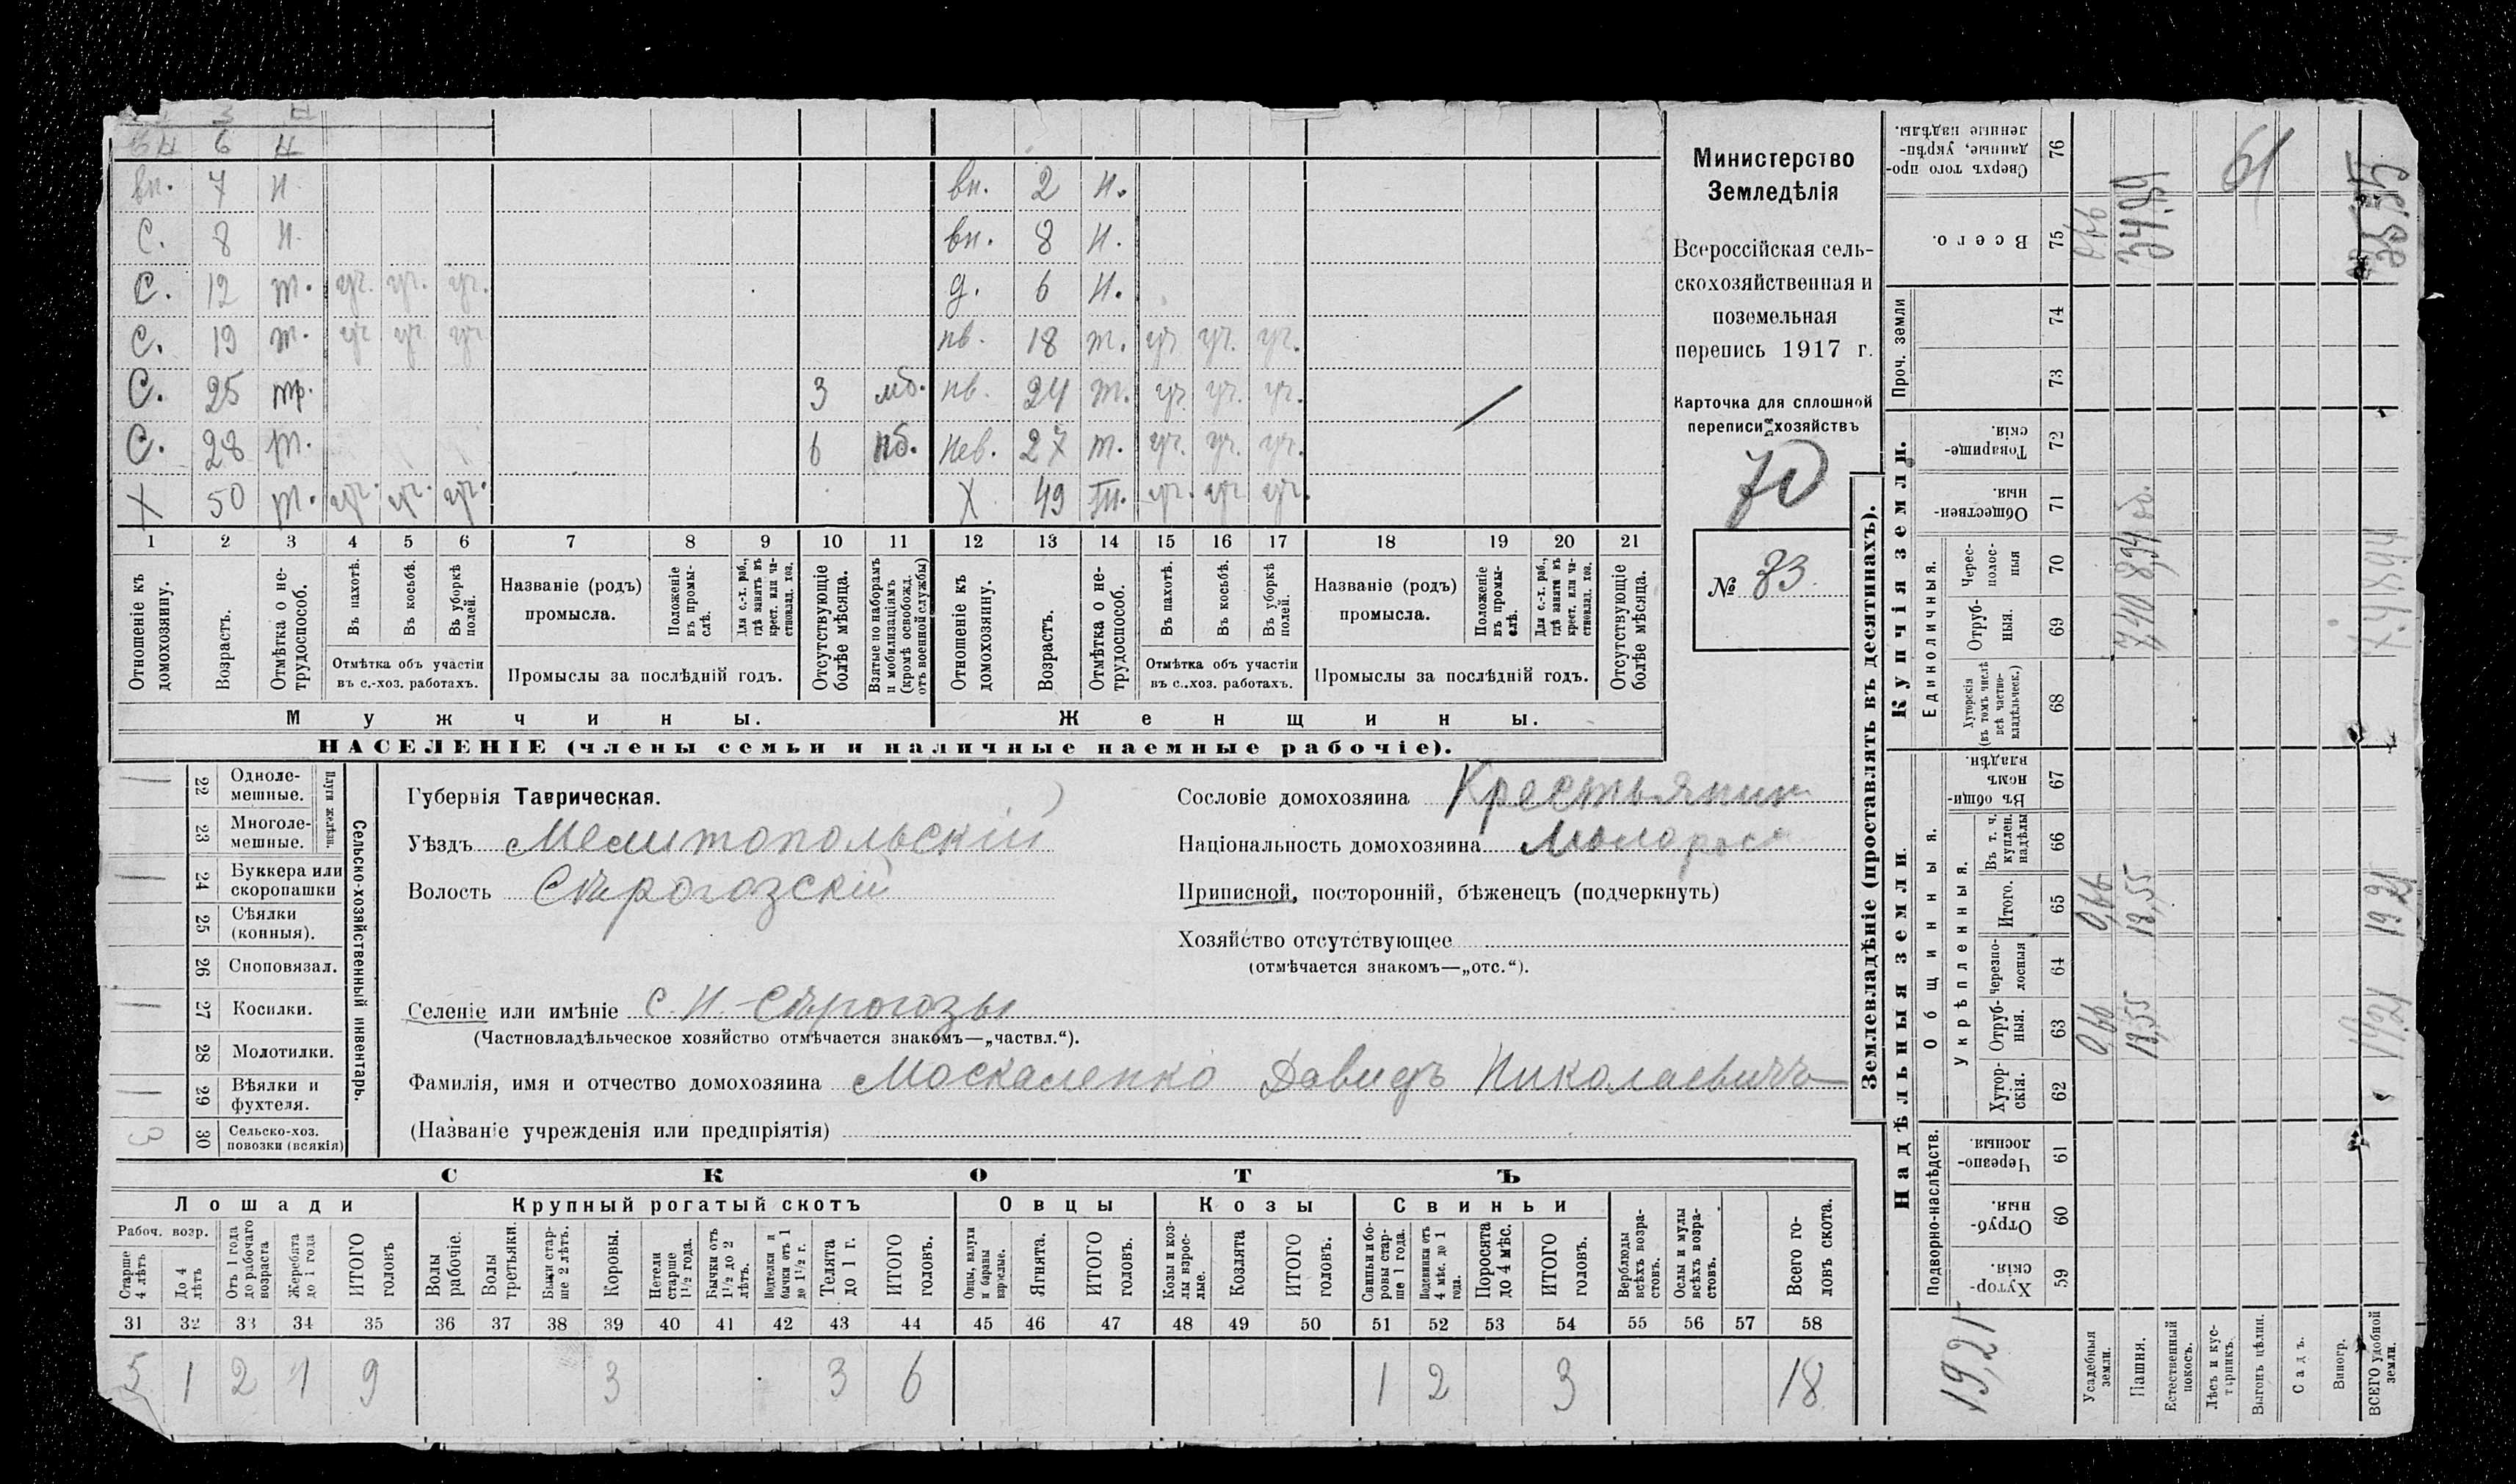 6 н
вн. 7 н.
С. 8 н.
С. 12 т. уч. уч. уч.
С. 19 т. уч уч. уч
С. 25 тр. 3 мб.
С. 28 т. 6 нб.
Х 50 т. уч. уч. уч.
вн. 2 н.
вн. 8 н.
д. 6 н.
нв. 18 т. уч уч. уч.
нв. 24 т. уч. уч. уч.
нев. 27 т. уч. уч. уч.
Х 49 т. уч. уч уч.
1 2 3 4 5 6 7 8 9 10 11 12 13 14 15 16 17 18 19 20 21
Отношеніе къ домохозяину.
Возрастъ.
Отмѣтка о не-трудоспособ.
Въ пахотѣ.
Въ косьбѣ.
Въ уборкѣ полей.
Отмѣтка объ участіи
въ с.-хоз. работахъ.
Названіе (родъ)
промысла.
Положеніе въ промы-слѣ.
Для с.-х. раб., гдѣ занятъ въ крест. или ча-стновлад. хоз.
Промыслы за послѣдній годъ.
Отсутствующіе болѣе мѣсяца.
Взятые по наборамъ и мобилизаціямъ (кромѣ освобожд. отъ военной службы)
Отношеніе къ домохозяину.
Возрастъ.
Отмѣтка о не-трудоспособ.
Въ пахотѣ.
Въ косьбѣ.
Въ уборкѣ полей.
Отмѣтка объ участіи
въ с..хоз. работахъ.
Названіе (родъ)
промысла.
Положеніе въ промы-слѣ.
Для с.-х. раб., гдѣ занятъ въ крест. или ча-стновлад. хоз.
Промыслы за послѣдній годъ.
Отсутствующіе болѣе мѣсяца.
Мужчины.
Женщины.
НАСЕЛЕНІЕ (члены семьи и наличные наемные рабочіе).
Министерство
Земледѣлія
Всероссійская сель-
скохозяйственная и
поземельная
перепись 1917 г.
Карточка для сплошной
переписи хозяйствъ
70
№ 83.
22 Одноле-мешные.
23 Многоле-мешные.
Плуги желѣзн.
24 Буккера или скоропашки
25 Сѣялки (конныя).
26 Сноповязал.
27 Косилки.
28 Молотилки.
29 Вѣялки и фухтеля.
30 Сельско-хоз. повозки (всякія)
3
Сельско-хозяйственный инвентарь.
Губернія Таврическая.
Уѣздъ Мелитопольскій
Волость Сѣрогозскій
Селеніе или имѣніе с. Н.-Сѣрогозы
(Частновладѣльческое хозяйство отмѣчается знакомъ—„частвл.“).
Фамилія, имя и отчество домохозяина Москаленко Давидъ Николаевичъ
(Названіе учрежденія или предпріятія)
Сословіе домохозяина Крестьянин
Національность домохозяина Малорос
Приписной, посторонній, бѣженецъ (подчеркнуть)
Хозяйство отсутствующее
(отмѣчается знакомъ—„отс.“).
СКОТЪ
Лошади
Крупный рогатый скотъ
Овцы
Козы
Свиньи
Рабоч. возр.
Старше 4 лѣтъ
До 4 лѣтъ
Отъ 1 года до рабочаго возраста
Жеребята до 1 года
ИТОГО головъ
Волы рабочіе.
Волы третьяки.
Быки стар-ше 2 лѣтъ.
Коровы.
Нетели старше 1½ года.
Бычки отъ 1½ до 2 лѣтъ.
Подтелки и бычки отъ 1 до 1½ г.
Телята до 1 г.
ИТОГО головъ.
Овцы, валухи и бараны взрослые.
Ягнята.
ИТОГО головъ.
Козы и коз-лы взрос-лые.
Козлята
ИТОГО головъ.
Свиньи и бо-ровы стар-ше 1 года.
Подсвинки отъ 4 мѣс. до 1 года.
Поросята до 4 мѣс.
ИТОГО головъ.
Верблюды всѣхъ возра-стовъ.
Ослы и мулы всѣхъ возра-стовъ.
Всего го-ловъ скота.
31 32 33 34 35 36 37 38 39 40 41 42 43 44 45 46 47 48 49 50 51 52 53 54 55 56 57 58
5 1 2 1 9 3 3 6 1 2 3 18
Землевладѣніе (проставлять въ десятинахъ).
Купчія земли.
Надѣльныя земли.
Проч. земли
Сверхъ того про-данные, укрѣп-ленные надѣлы. 76
Всего. 75
74
73
Товарище-скія. 72
Обществен-ныя. 71
Единоличныя.
Черес-полос-ныя 70
Отруб-ныя. 69
Хуторскія (въ томъ числѣ всѣ частно-владѣльческ.) 68
Общинныя.
Въ общин-номъ владѣн. 67
Укрѣпленныя.
Въ т. ч. куплен. надѣлы 66
Итого. 65
черезпо-лосныя 64
Отруб-ныя. 63
Хутор-скія. 62
Подворно-наслѣдств.
Черезпо-лосныя. 61
Отруб-ныя. 60
Хутор-скія. 59
19,21
Усадебныя земли.
Пашня.
Естественный покосъ.
Лѣсъ и кус-тарникъ.
Выгонъ цѣлин.
Садъ.
Виногр.
ВСЕГО удобной земли.
0,66
18,55
19.21
0,66
18,55
19.21
61